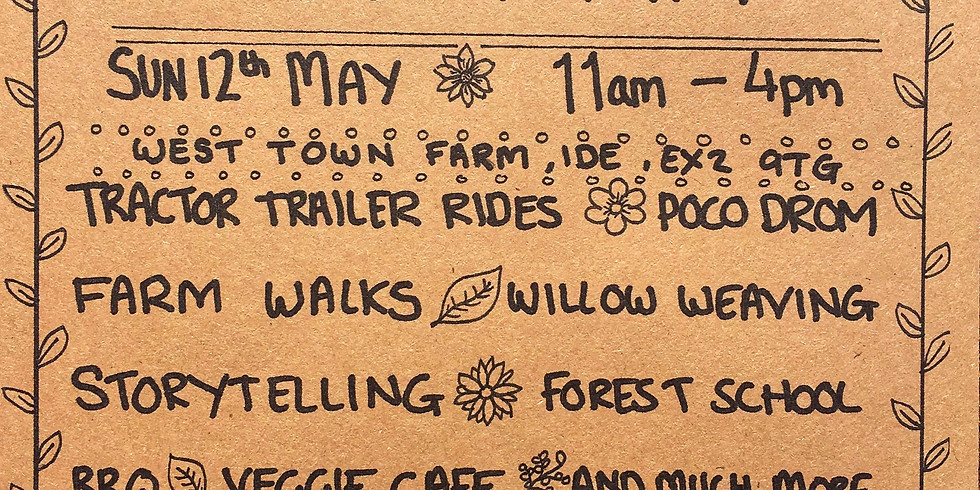 SUN 12th MAY 11am – 4pm
WEST TOWN FARM, IDE, EX2 9TG
TRACTOR TRAILER RIDES POCO DROM
FARM WALKS WILLOW WEAVING
STORYTELLING FOREST SCHOOL
BBQ VEGGIE CAFE AND MUCH MORE